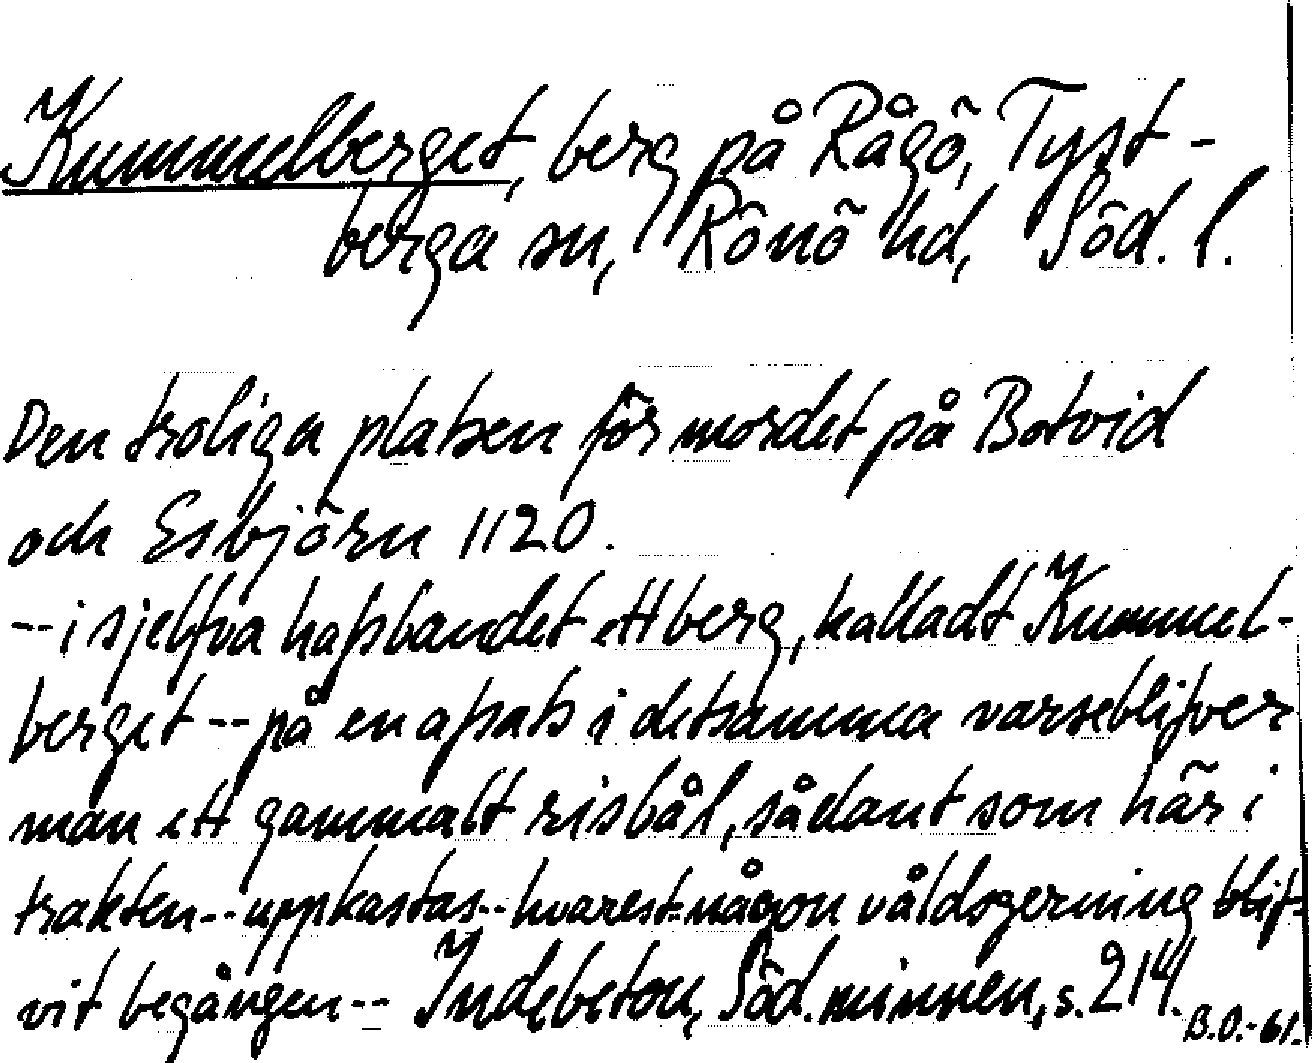 Kummelberget, berg på Rågö, Tyst-
berga sn, Rönö hd, Söd. l.
Den troliga platsen för mordet på Botvid
och Esbjörn 1120.
--i sjelfva hafsbandet ett berg, kalladt Kummel-
berget -- på en afsats i detsamma varseblifver
man ett gammalt risbål, sådant som här i
trakten -- uppkastas -- hvarest någon våldsgerning blif-
vit begången -- Indebetou, Söd. minnen, s. 214.
B.O.-61.